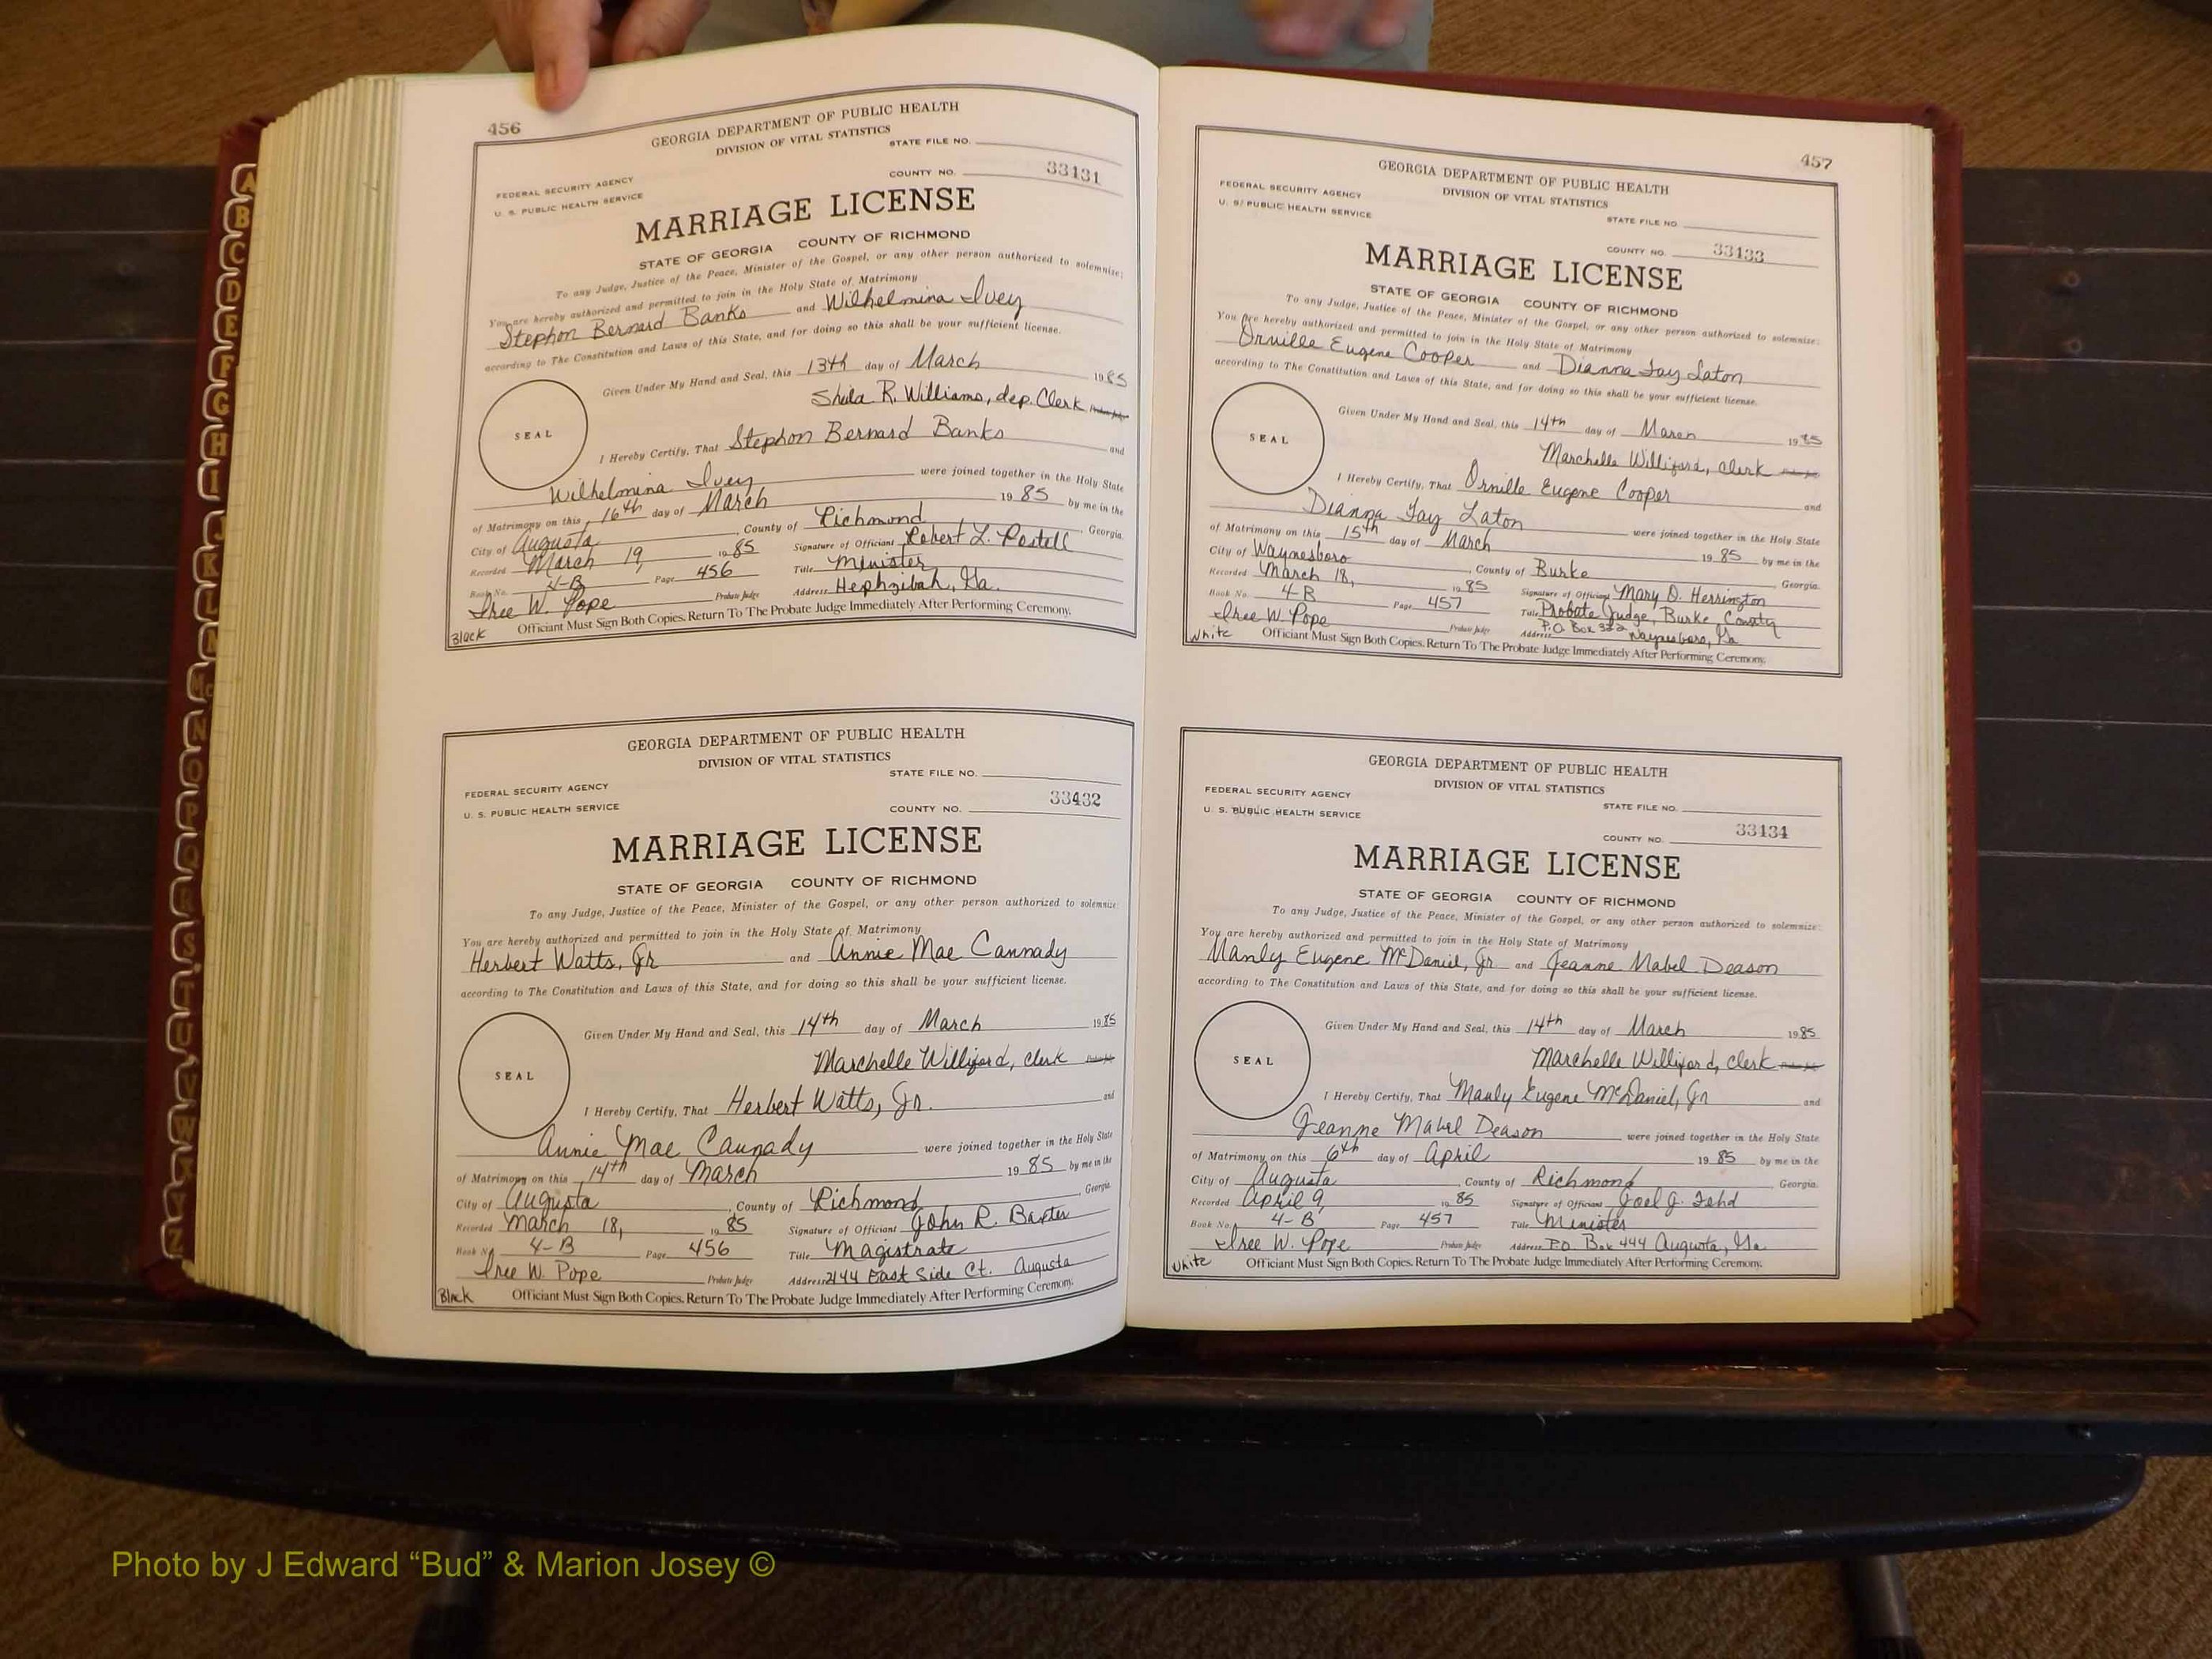 456
GEORGIA DEPARTMENT OF PUBLIC HEALTH
DIVISION OF VITAL STATISTICS
STATE FILE NO.
FEDERAL SECURITY AGENCY
COUNTY NO. 33131
U. S. PUBLIC HEALTH SERVICE
MARRIAGE LICENSE
STATE OF GEORGIA COUNTY OF RICHMOND
To any Judge, Justice of the Peace, Minister of the Gospel, or any other person authorized to solemnize:
You are hereby authorized and permitted to join in the Holy State of Matrimony
Stephon Bernard Banks and Wilhelmina Ivey
according to The Constitution and Laws of this State, and for doing so this shall be your sufficient license.
Given Under My Hand and Seal, this 13th day of March 1985
Sheila R. Williams, dep. Clerk
SEAL
I Hereby Certify, That Stephon Bernard Banks and
Wilhelmina Ivey were joined together in the Holy State
of Matrimony on this 16th day of March 19 85 by me in the
City of Augusta, County of Richmond, Georgia.
Recorded March 19, 19 85 Signature of Officiant Robert L. Postell
Book No. 4-B Page 456 Title Minister
Iree W. Pope Probate Judge Address Hephzibah, Ga.
Black Officiant Must Sign Both Copies. Return To The Probate Judge Immediately After Performing Ceremony.
GEORGIA DEPARTMENT OF PUBLIC HEALTH
DIVISION OF VITAL STATISTICS
STATE FILE NO.
FEDERAL SECURITY AGENCY
COUNTY NO. 33432
U. S. PUBLIC HEALTH SERVICE
MARRIAGE LICENSE
STATE OF GEORGIA COUNTY OF RICHMOND
To any Judge, Justice of the Peace, Minister of the Gospel, or any other person authorized to solemnize:
You are hereby authorized and permitted to join in the Holy State of Matrimony
Herbert Watts, Jr and Annie Mae Cannady
according to The Constitution and Laws of this State, and for doing so this shall be your sufficient license.
Given Under My Hand and Seal, this 14th day of March 1985
Marchelle Williford, clerk
SEAL
I Hereby Certify, That Herbert Watts, Jr. and
Annie Mae Cannady were joined together in the Holy State
of Matrimony on this 14th day of March 19 85 by me in the
City of Augusta, County of Richmond, Georgia.
Recorded March 18, 19 85 Signature of Officiant John R. Baxter
Book No. 4-B Page 456 Title Magistrate
Iree W. Pope Probate Judge Address 2144 East Side Ct. Augusta
Black Officiant Must Sign Both Copies. Return To The Probate Judge Immediately After Performing Ceremony.
457
GEORGIA DEPARTMENT OF PUBLIC HEALTH
DIVISION OF VITAL STATISTICS
FEDERAL SECURITY AGENCY
STATE FILE NO.
U. S. PUBLIC HEALTH SERVICE
COUNTY NO. 33133
MARRIAGE LICENSE
STATE OF GEORGIA COUNTY OF RICHMOND
To any Judge, Justice of the Peace, Minister of the Gospel, or any other person authorized to solemnize:
You are hereby authorized and permitted to join in the Holy State of Matrimony
Orville Eugene Cooper and Dianna Fay Laton
according to The Constitution and Laws of this State, and for doing so this shall be your sufficient license.
Given Under My Hand and Seal, this 14th day of March 1985
Marchelle Williford, clerk
SEAL
I Hereby Certify, That Orville Eugene Cooper and
Dianna Fay Laton were joined together in the Holy State
of Matrimony on this 15th day of March 19 85 by me in the
City of Waynesboro, County of Burke Georgia.
Recorded March 18, 19 85 Signature of Officiant Mary D. Herrington
Book No. 4-B Page 457 Title Probate Judge, Burke County
Iree W. Pope Probate Judge Address P.O. Box 322 Waynesboro, Ga
White Officiant Must Sign Both Copies. Return To The Probate Judge Immediately After Performing Ceremony.
GEORGIA DEPARTMENT OF PUBLIC HEALTH
DIVISION OF VITAL STATISTICS
FEDERAL SECURITY AGENCY
STATE FILE NO.
U. S. PUBLIC HEALTH SERVICE
COUNTY NO. 33134
MARRIAGE LICENSE
STATE OF GEORGIA COUNTY OF RICHMOND
To any Judge, Justice of the Peace, Minister of the Gospel, or any other person authorized to solemnize:
You are hereby authorized and permitted to join in the Holy State of Matrimony
Manly Eugene McDaniel, Jr and Jeanne Mabel Deason
according to The Constitution and Laws of this State, and for doing so this shall be your sufficient license.
Given Under My Hand and Seal, this 14th day of March 1985
Marchelle Williford, clerk
SEAL
I Hereby Certify, That Manly Eugene McDaniel, Jr and
Jeanne Mabel Deason were joined together in the Holy State
of Matrimony on this 6th day of April 19 85 by me in the
City of Augusta, County of Richmond, Georgia.
Recorded April 9, 19 85 Signature of Officiant Joel G.
Book No. 4-B Page 457 Title Minister
Iree W. Pope Probate Judge Address P.O. Box 444 Augusta, Ga
White Officiant Must Sign Both Copies. Return To The Probate Judge Immediately After Performing Ceremony.
A
B
C
D
E
F
G
H
I
J
K
L
M
Mc
N
O
P
Q
R
S
T
U
V
W
X
Y
Z
Photo by J Edward “Bud” & Marion Josey ©